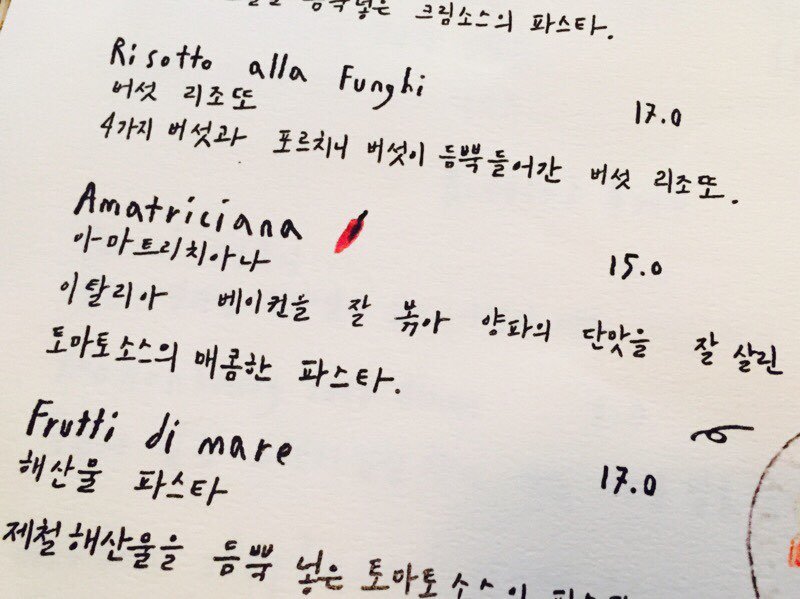 듬뿍넣은 크림소스의 파스타.
Risotto alla Funghi
버섯 리조또 17.0
4가지 버섯과 포르치니 버섯이 듬뿍들어간 버섯 리조또.
Amatriciana
아마트리치아나 15.0
이탈리아 베이컨을 잘 볶아 양파의 단맛을 잘 살린
토마토소스의 매콤한 파스타.
Frutti di mare
해산물 파스타 17.0
제철해산물을 듬뿍 넣은 토마토소스의 파스타